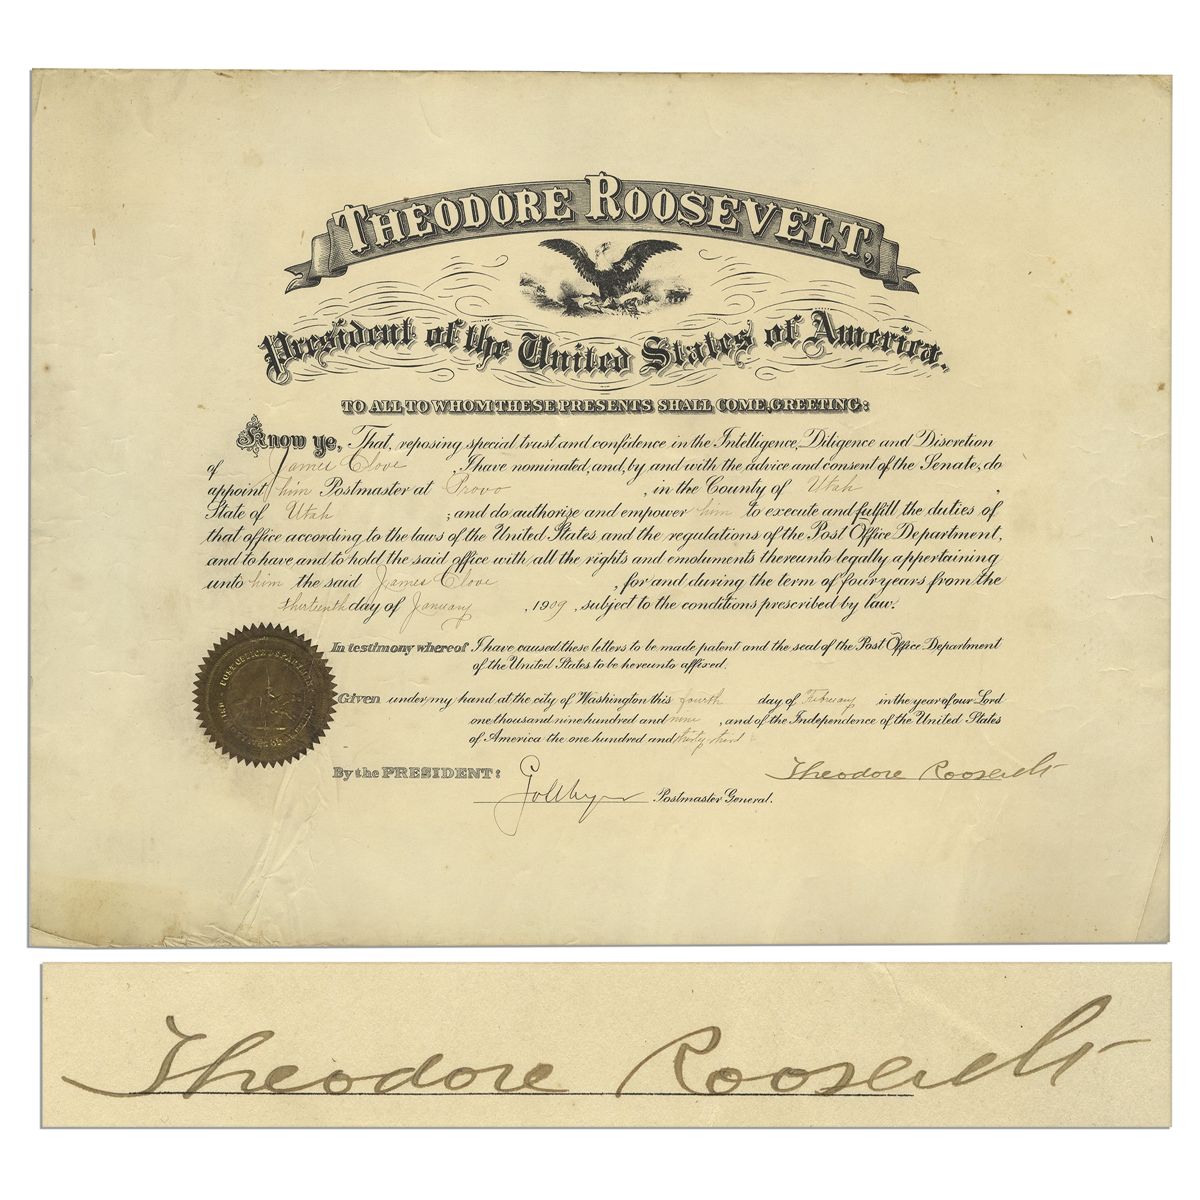 THEODORE ROOSEVELT,
President of the United States of America.
TO ALL TO WHOM THESE PRESENTS SHALL COME, GREETING:
Know ye, That, reposing special trust and confidence in the Intelligence, Diligence and Discretion
of James Clove, I have nominated, and, by and with the advice and consent of the Senate, do
appoint him Postmaster at Provo, in the County of Utah,
State of Utah; and do authorize and empower him to execute and fulfill the duties of
that office according to the laws of the United States and the regulations of the Post Office Department,
and to have and to hold the said office with all the rights and emoluments thereunto legally appertaining
unto him the said James Clove, for and during the term of four years from the
thirteenth day of January, 1909, subject to the conditions prescribed by law.
In testimony whereof I have caused these letters to be made patent and the seal of the Post Office Department
of the United States to be hereunto affixed.
Given under my hand at the city of Washington this fourth day of February in the year of our Lord
one thousand nine hundred and nine, and of the Independence of the United States
of America the one hundred and thirty third.
By the PRESIDENT:
Theodore Roosevelt
Postmaster General.
POST OFFICE DEPARTMENT
Theodore Roosevelt